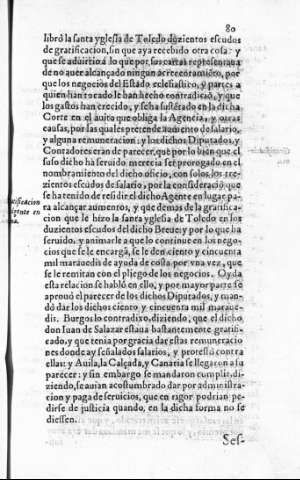 80
libró la santa yglesia de Toledo duzientos escudos
de gratificacion, sin que aya recebido otra cosa: y
que se aduirtiera lo que por sus cartas representaua
de no auer alcançado ningun acrecentamiẽto, por
que los negocios del Estado eclesiastico, y partes a
quien han tocado le han hecho contradiciõ, y que
los gastos han crecido, y se ha sustẽtado en la dicha
Corte en el auito que obliga la Agencia, y otras
causas, por las quales pretende aumento de salario,
y alguna remuneracion: y los dichos Diputados, y
Contadores eran de parecer, que por lo bien que el
suso dicho ha seruido merecia ser prorogado en el
nombramiento del dicho oficio, con solos los tre-
zientos escudos de salario, por la consideraciõ que
se ha tenido de residir el dicho Agente en lugar pa-
ra alcançar aumentos, y que demas de la gratifica-
cion que le hizo la santa yglesia de Toledo en los
duzientos escudos del dicho Breue: y por lo que ha
seruido, y animarle a que lo continue en los nego-
cios que se le encargã, se le den ciento y cincuenta
mil marauedis de ayuda de costa por vna vez, que
se le remitan con el pliego de los negocios. Oyda
esta relacion se habló en ello, y por mayor parte se
aprouó el parecer de los dichos Diputados, y man-
dó dar los dichos ciento y cincuenta mil maraue-
dis. Burgos lo contradixo, diziendo, que el dicho
don Iuan de Salazar estaua bastantemente gratifi-
cado, y que tenia por gracia dar estas remuneracio
nes donde ay señalados salarios, y protestó contra
ellas: y Auila, la Calçada, y Canaria se llegaron a su
parecer: y sin embargo se mandaron cumplir, di-
ziendo, se auian acostumbrado dar por administra-
cion y paga de seruicios, que en rigor podrian pe-
dirse de justicia quando, en la dicha forma no se
diessen.
Ses-